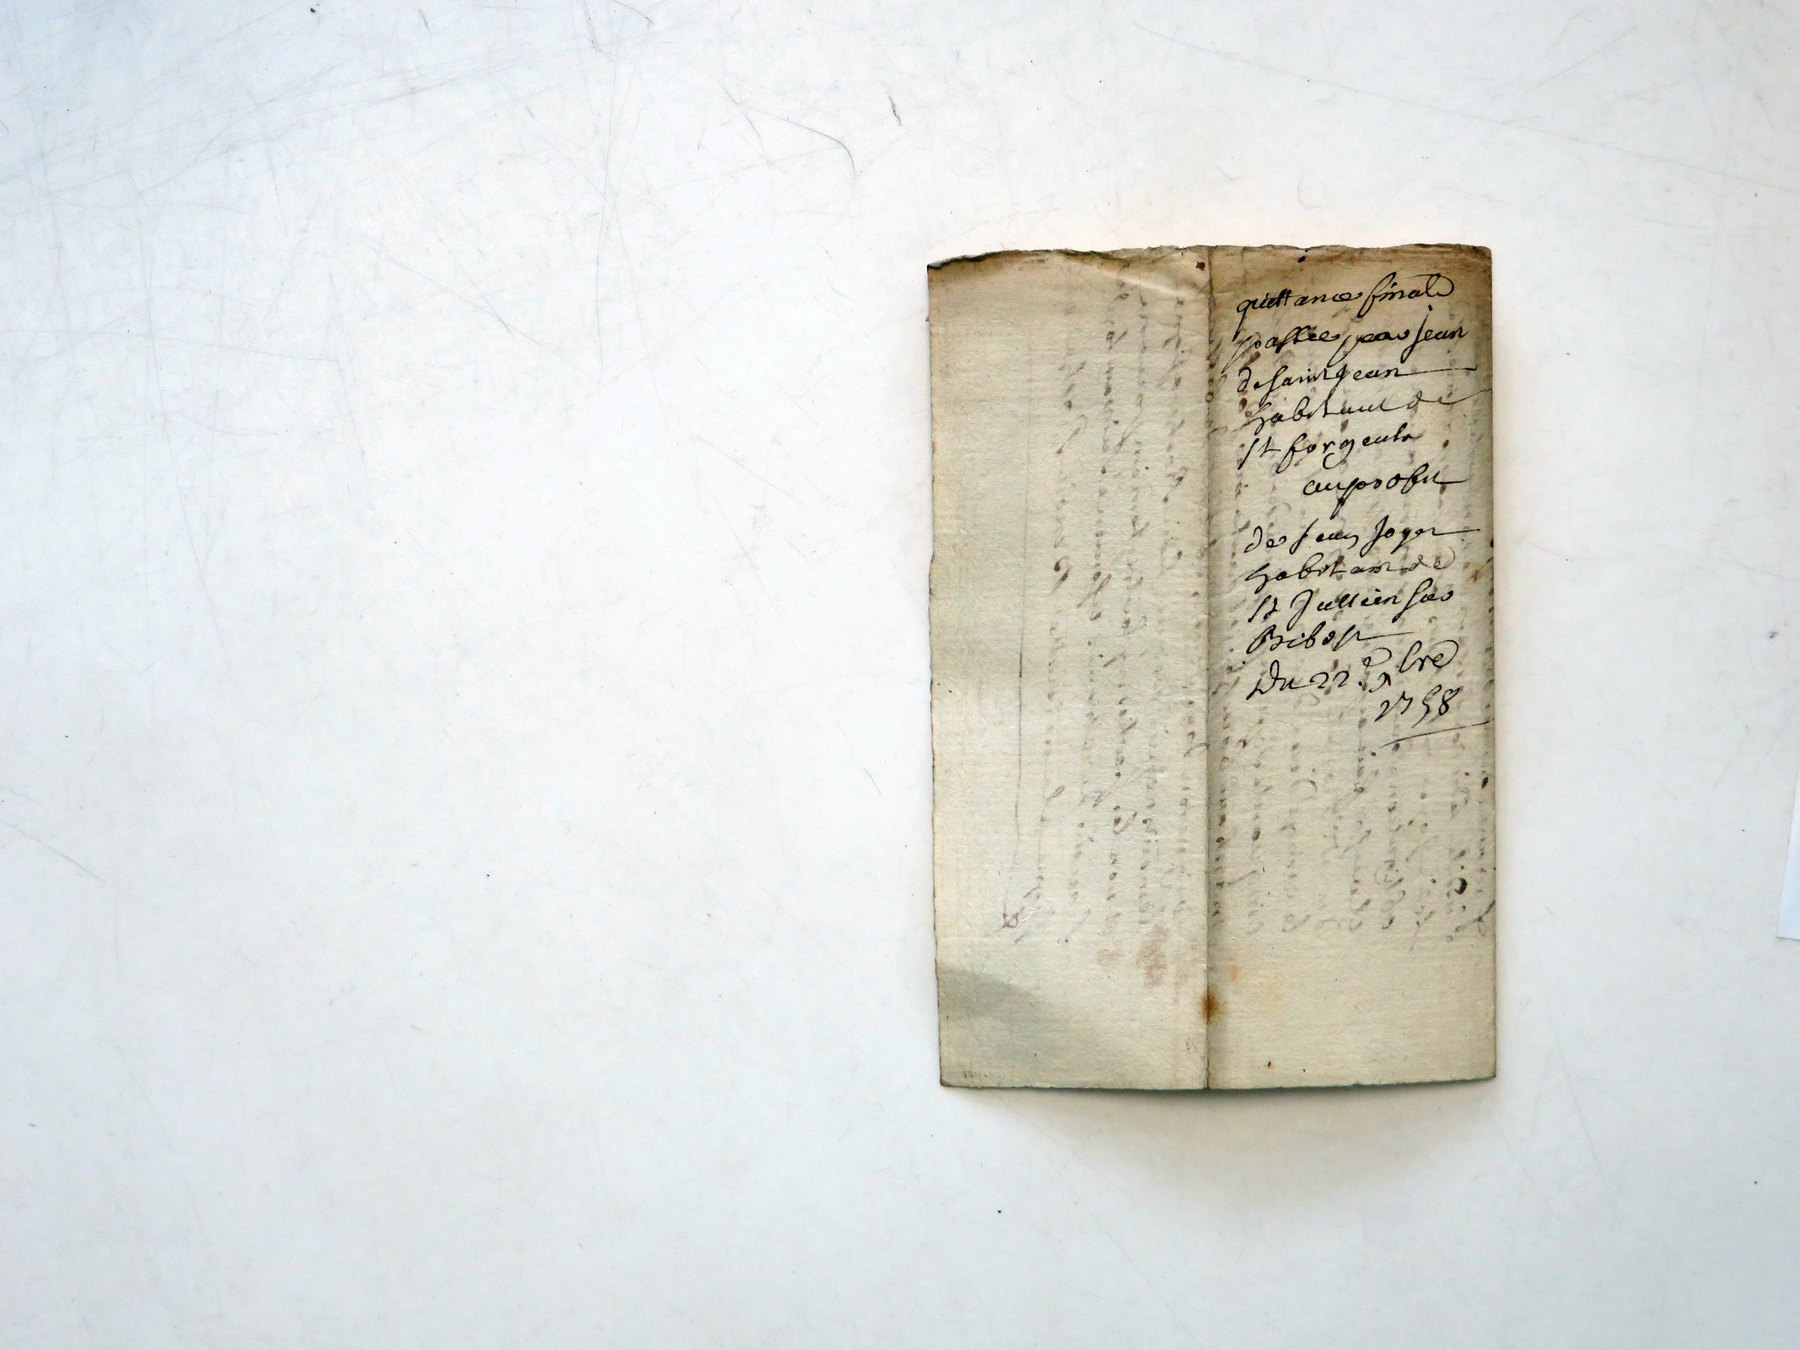 quittance finale
passée par Jean
de Saint Jean
habitant de
St forgeulx
au profit
de Jean
habitant de
St Jullien sur
Bibost
Du 22.e 9bre
1758